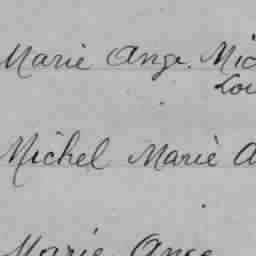 Marie Ange. Mic
Lou
Michel Marie A
Marie Ange